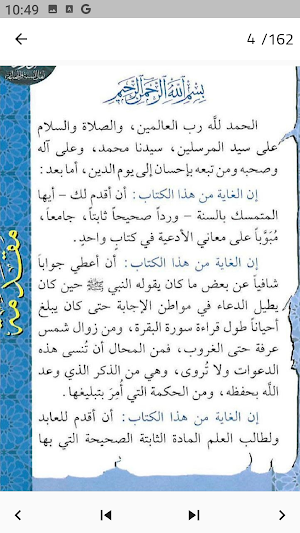 10:49
4 /162
بِسْمِ اللَّهِ الرَّحْمَنِ الرَّحِيمِ
الحمد للَّه رب العالمين، والصلاة والسلام
على سيد المرسلين، سيدنا محمد، وعلى آله
وصحبه ومن تبعه بإحسان إلى يوم الدين، أما بعد:
إن الغاية من هذا الكتاب: أن أقدم لك – أيها
المتمسك بالسنة – ورداً صحيحاً ثابتاً، جامعاً،
مُبَوَّباً على معاني الأدعية في كتابٍ واحدٍ.
إن الغاية من هذا الكتاب: أن أعطي جواباً
شافياً عن بعض ما كان يقوله النبي ﷺ حين كان
يطيل الدعاء في مواطن الإجابة حتى كان يبلغ
أحياناً طول قراءة سورة البقرة، ومن زوال شمس
عرفة حتى الغروب، فمن المحال أن تُنسى هذه
الدعوات ولا تُروى، وهي من الذكر الذي وعد
اللَّه بحفظه، ومن الحكمة التي أُمِرَ بتبليغها.
إن الغاية من هذا الكتاب: أن أقدم للعابد
ولطالب العلم المادة الثابتة الصحيحة التي بها
مقدمة